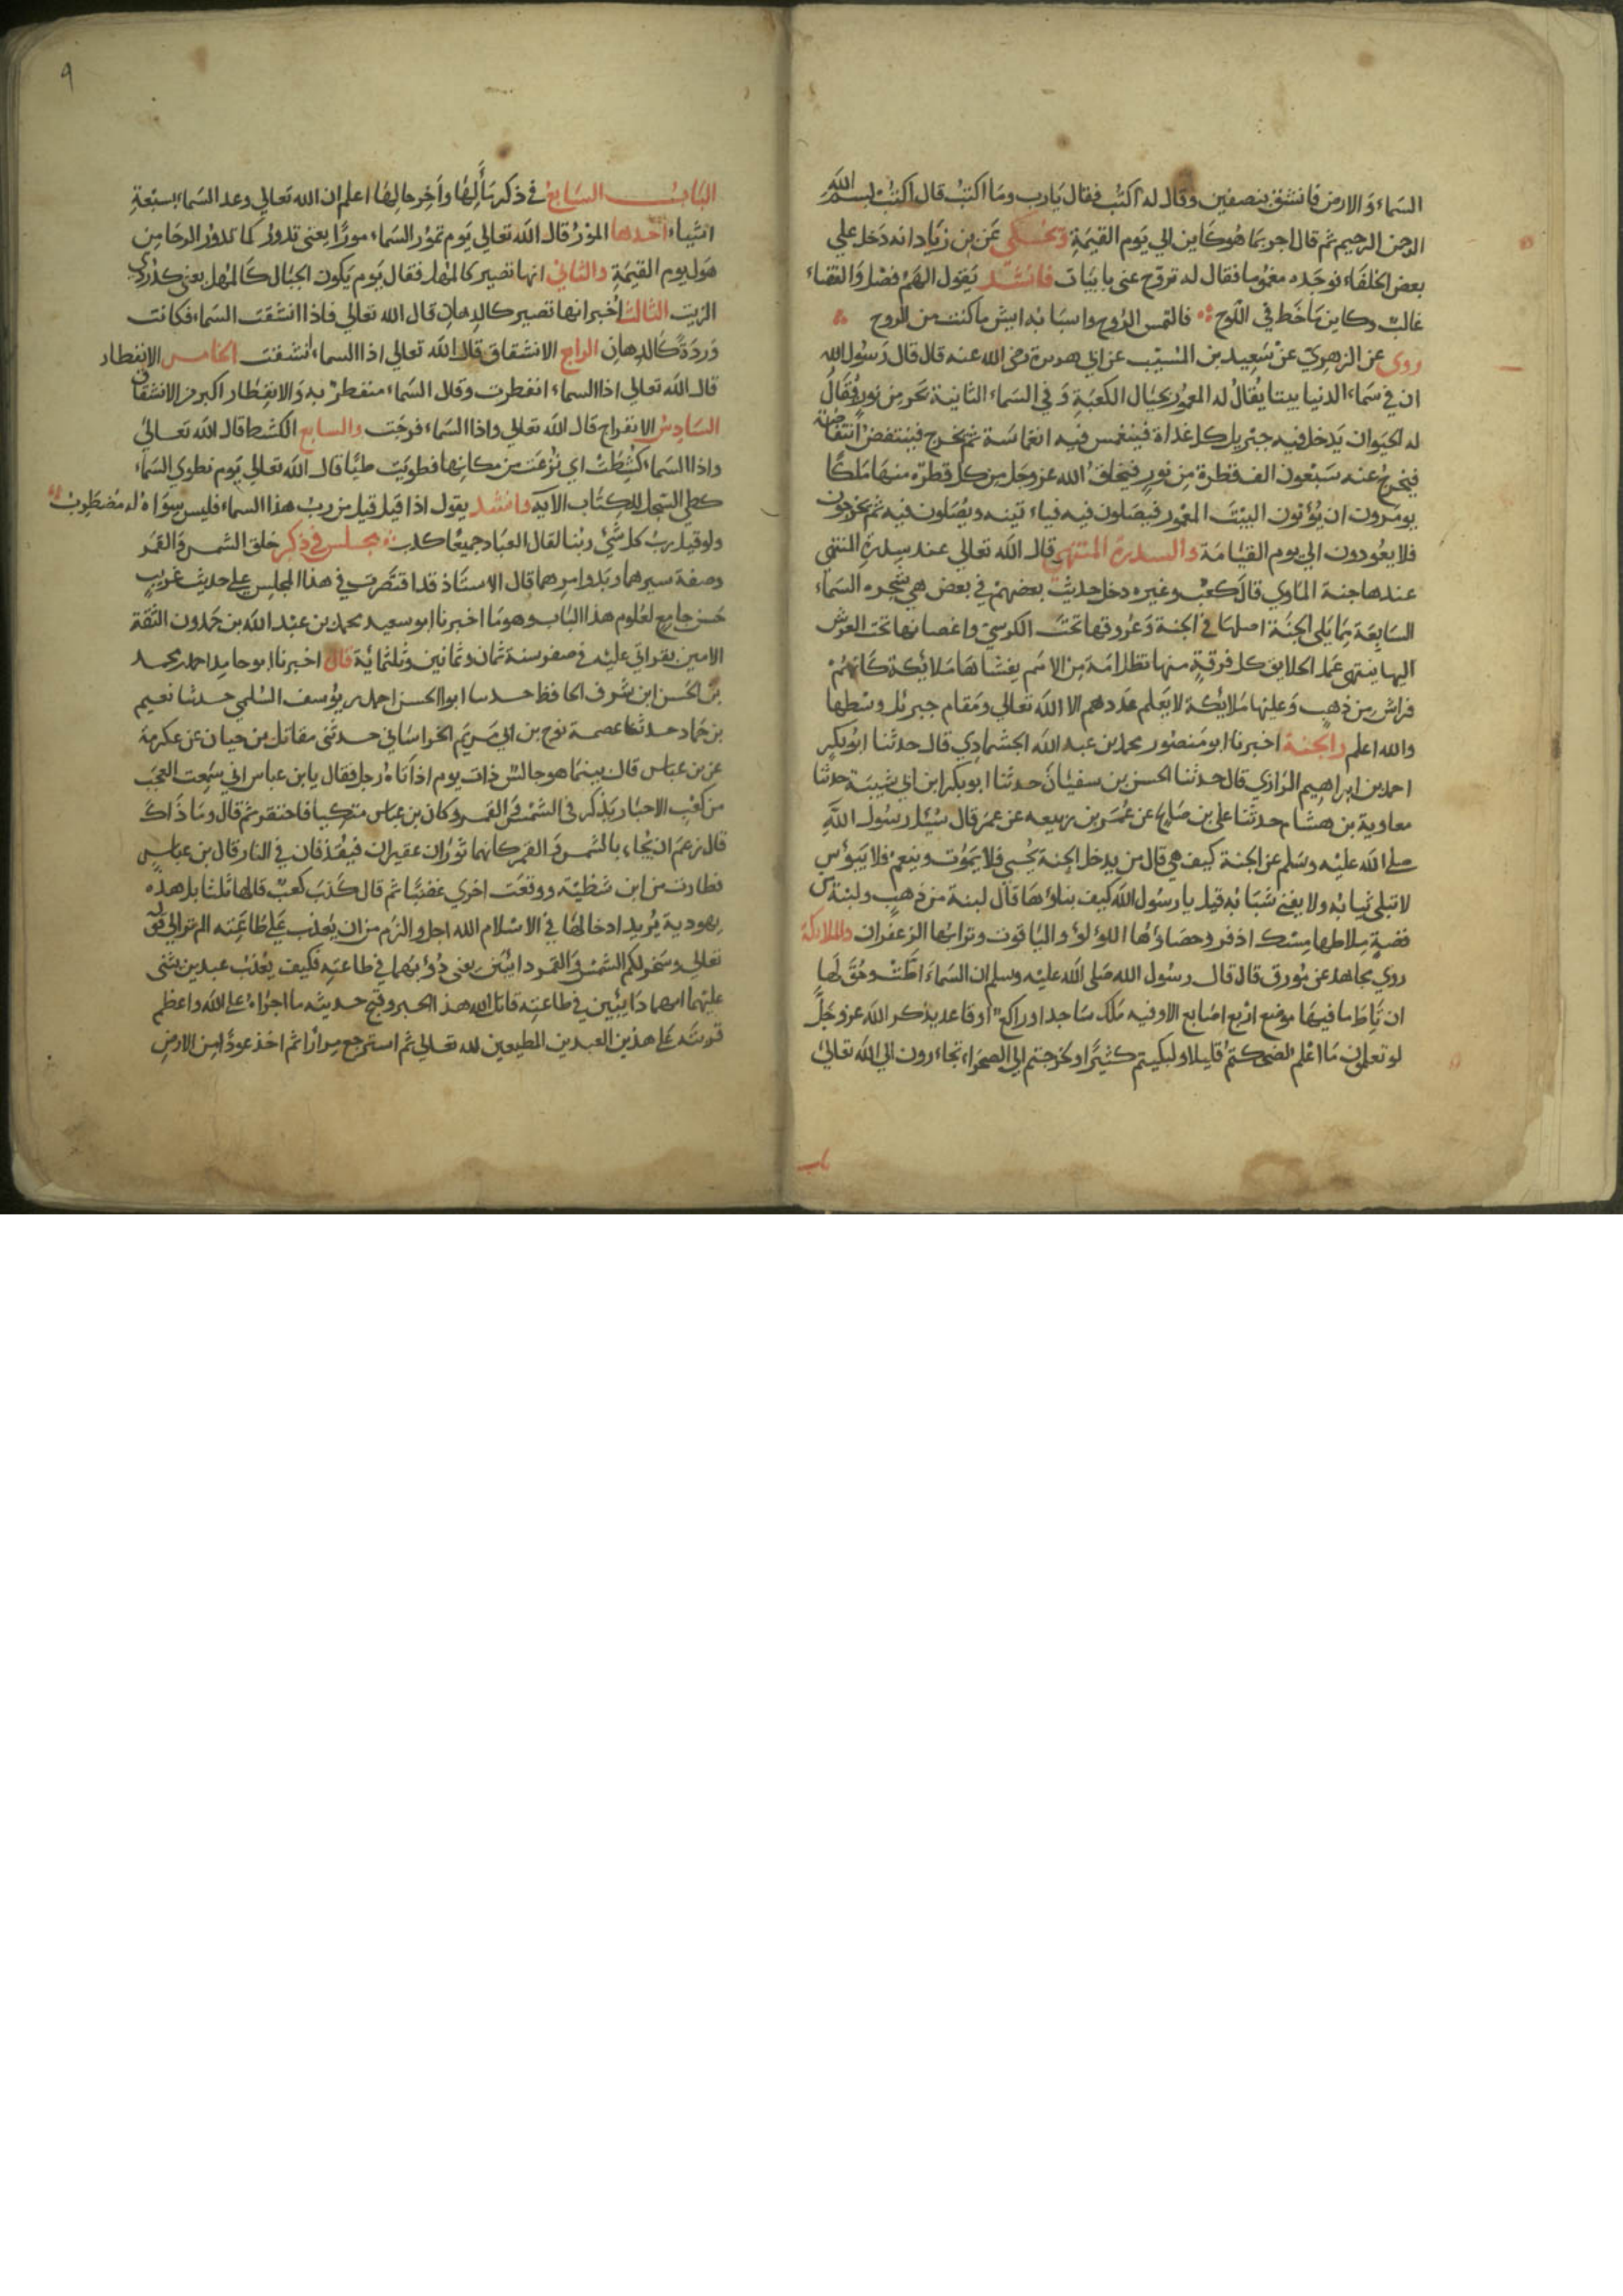 السماء والارض فانشق بنصفين وقال له اكتب فقال يا رب وما اكتب قال اكتب بسم الله
الرحمن الرحيم ثم قال اجر بما هو كاين الي يوم القيمة وحكي عن بن زياد انه دخل علي
بعض الخلفاء فوجده مغموما فقال له تروح عني بابيات فانشد يقول الهم فضل والقضاء
غالب وكاين ما خط في اللوح فالتمس الروح واسبابه ايش ما كنت من الروح
روي عن الزهري عن سعيد بن المسيب عن ابي هريرة رضي الله عنه قال قال رسول الله
ان في سماء الدنيا بيتا يقال له المعمور بحيال الكعبة وفي السماء الثانية بحر من نور يقال
له الحيوان يدخل فيه جبريل كل غداة فينغمس فيه انغماسة ثم يخرج فينتفض انتفاضة
فيخرج عنه سبعون الف قطرة من نور فيخلق الله عز وجل من كل قطرة منها ملكا
يومرون ان يؤتون البيت المعمور فيصلون فيه فياء تينه ويصلون فيه ثم يخرجون
فلا يعودون الي يوم القيامة والسدرة المنتهي قال الله تعالي عند سدرة المنتهي
عندها جنة الماوي قال كعب وغيره دخل حديث بعضهم في بعض هي شجره السماء
السابعة مما يلي الجنة اصلها في الجنة وعروقها تحت الكرسي واغصانها تحت العرش
اليها ينتهي علم الخلايق كل فرقة منها تظل امة من الامم يغشاها ملائكة كانهم
فراش من ذهب وعليها ملائكة لا يعلم عددهم الا الله تعالي ومقام جبرئل وسطها
والله اعلم والجنة اخبرنا ابو منصور محمد بن عبد الله الجشمادي قال حدثنا ابو بكر
احمد بن ابراهيم الرازي قال حدثنا الحسن بن سفيان حدثنا ابو بكر ابن ابي شيبة حدثنا
معاوية بن هشام حدثنا علي بن صالح عن عمر بن ربيعه عن عمر قال سئل رسول الله
صلي الله عليه وسلم عن الجنة كيف هي قال من يدخل الجنة يحيي فلا يموت وينعم فلا يبؤس
لا تبلي ثيابه ولا يفني شبابه قيل يا رسول الله كيف بناؤها قال لبنة من ذهب ولبنة من
فضة ملاطها مسك اذفر وحصاؤها اللؤلؤ والياقوت وترابها الزعفران والملائكة
روي مجاهد عن مورق قال قال رسول الله صلي الله عليه وسلم ان السماء اطت وحق لها
ان تاط ما فيها موضع اربع اصابع الا وفيه ملك ساجد او راكع او قاعد يذكر الله عز وجل
لو تعلمون ما اعلم لضحكتم قليلا ولبكيتم كثيرا ولخرجتم الي الصحراء تجاءرون الي الله تعالي
باب
٩
الباب السابع في ذكر مآلها واخر حالها اعلم ان الله تعالي وعد السماء بسبعة
اشياء احدها المور قال الله تعالي يوم تمور السماء مورا يعني تدور كما تدور الرحا من
هول يوم القيمة والثاني انها تصير كالمهل فقال يوم يكون الجبال كالمهل يعني كدردي
الزيت الثالث اخبر انها تصير كالدهان قال الله تعالي فاذا انشقت السماء فكانت
وردة كالدهان الرابع الانشقاق قال الله تعالي اذا السماء انشقت الخامس الانفطار
قال الله تعالي اذا السماء انفطرت وقال السماء منفطر به والانفطار اكبر من الانشقاق
السادس الانفراج قال الله تعالي واذا السماء فرجت والسابع الكشط قال الله تعالي
واذا السماء كشطت اي نزعت من مكانها فطويت طيا قال الله تعالي يوم نطوي السماء
كطي السجل للكتاب الايه وانشد يقول اذا قيل قيل من رب هذا السماء فليس سواه له مضطرب
ولو قيل رب كل شئ ربنا لقال العباد جميعا كذب مجلس في ذكر خلق الشمس والقمر
وصفة سيرهما وبدو امرهما قال الاستاذ قد اقتصرت في هذا المجلس علي حديث غريب
حسن جامع لعلوم هذا الباب وهو ما اخبرنا ابو سعيد محمد بن عبد الله بن حمدون الثقة
الامين بقراتي عليه في صفر سنة ثمان وثمانين وثلثماية قال اخبرنا ابو حامد احمد محمد
بن الحسن ابن شرف الحافظ حدسا ابو الحسن احمد بن يوسف السلمي حدثنا نعيم
بن حماد حدثنا عصمة نوح بن ابي مريم الخراساني حدثني مقاتل بن حيان عن عكرمة
عن بن عباس قال بينما هو جالس ذات يوم اذ اتاه رجل فقال يا بن عباس اني سمعت العجب
من كعب الاحبار يذكر في الشمس والقمر وكان بن عباس متكيا فاحتفز ثم قال وما ذاك
قال زعم ان يجاء بالشمس والقمر كانهما ثوران عقيران فيقذفان في النار قال بن عباس
فطارت من ابن شظية ووقعت اخري غضبا ثم قال كذب كعب قالها ثلثا بل هذه
يهودية يريد ادخالها في الاسلام الله اجل واكرم من ان يعذب علي طاعته الم تر الي قوله
تعالي وسخر لكم الشمس والقمر دائبين يعني دؤبهما في طاعته فكيف يعذب عبدين يثني
عليهما انهما دايبين في طاعته قاتل الله هذا الحبر وقبح حديثه ما اجراه علي الله واعظم
فريته علي هذين العبدين المطيعين لله تعالي ثم استرجع مرارا ثم اخذ عودا من الارض